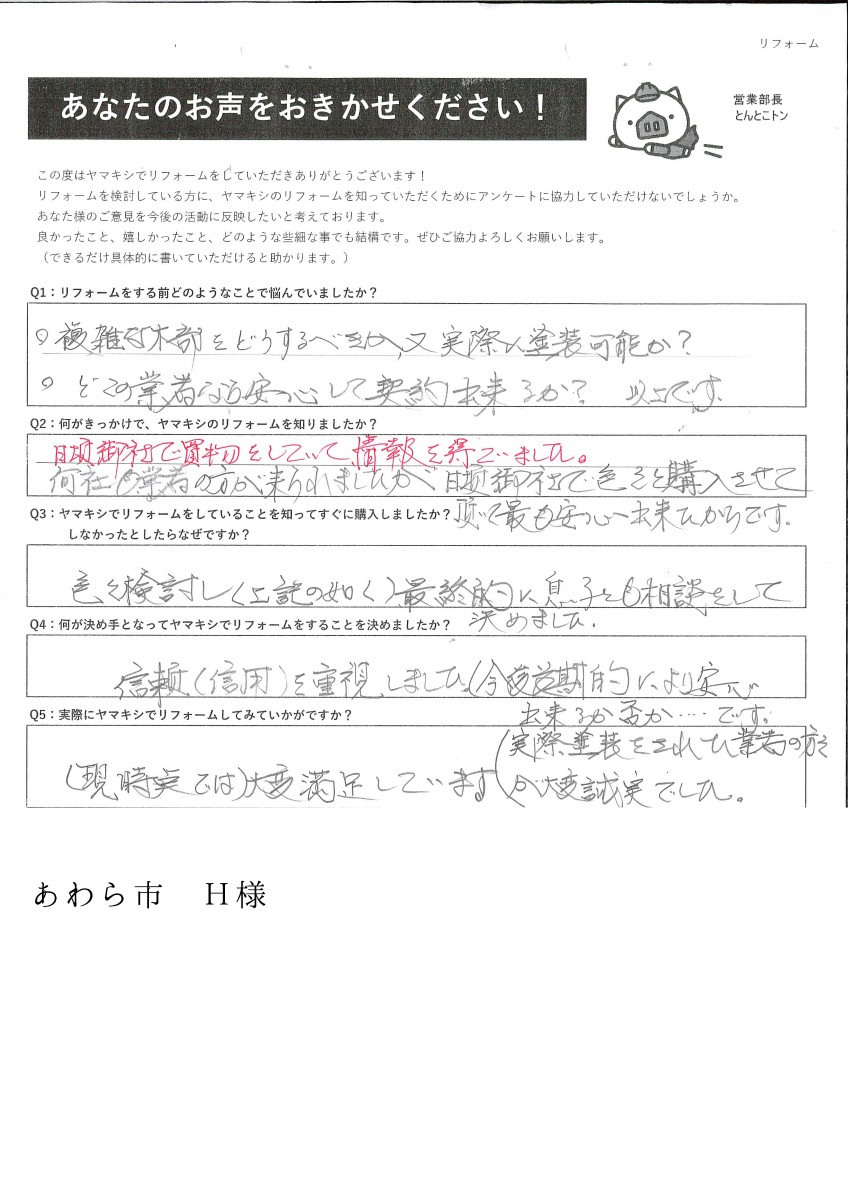 リフォーム
あなたのお声をおきかせください！
営業部長
とんとこトン
この度はヤマキシでリフォームをしていただきありがとうございます！
リフォームを検討している方に、ヤマキシのリフォームを知っていただくためにアンケートに協力していただけないでしょうか。
あなた様のご意見を今後の活動に反映したいと考えております。
良かったこと、嬉しかったこと、どのような些細な事でも結構です。ぜひご協力よろしくお願いします。
（できるだけ具体的に書いていただけると助かります。）
Q1：リフォームをする前どのようなことで悩んでいましたか？
○複雑な木部をどうするべきか、又実際に塗装可能か？
○どこの業者なら安心して契約出来るか？ 以上です。
Q2：何がきっかけで、ヤマキシのリフォームを知りましたか？
日頃御社で買物をしていて、情報を得ていました。
何社も業者の方が来られましたが日頃御社で色々購入させて
頂いて最も安心出来たからです。
Q3：ヤマキシでリフォームをしていることを知ってすぐに購入しましたか？
しなかったとしたらなぜですか？
色々検討し（上記の如く）最終的に息子とも相談をして
決めました．
Q4：何が決め手となってヤマキシでリフォームをすることを決めましたか？
信頼（信用）を重視しました（今後長期的により安心
出来るか否か……です。
Q5：実際にヤマキシでリフォームしてみていかがですか？
（現時実では）大変満足しています
（実際塗装をされた業者の方々
が大変誠実でした。
あわら市　H様